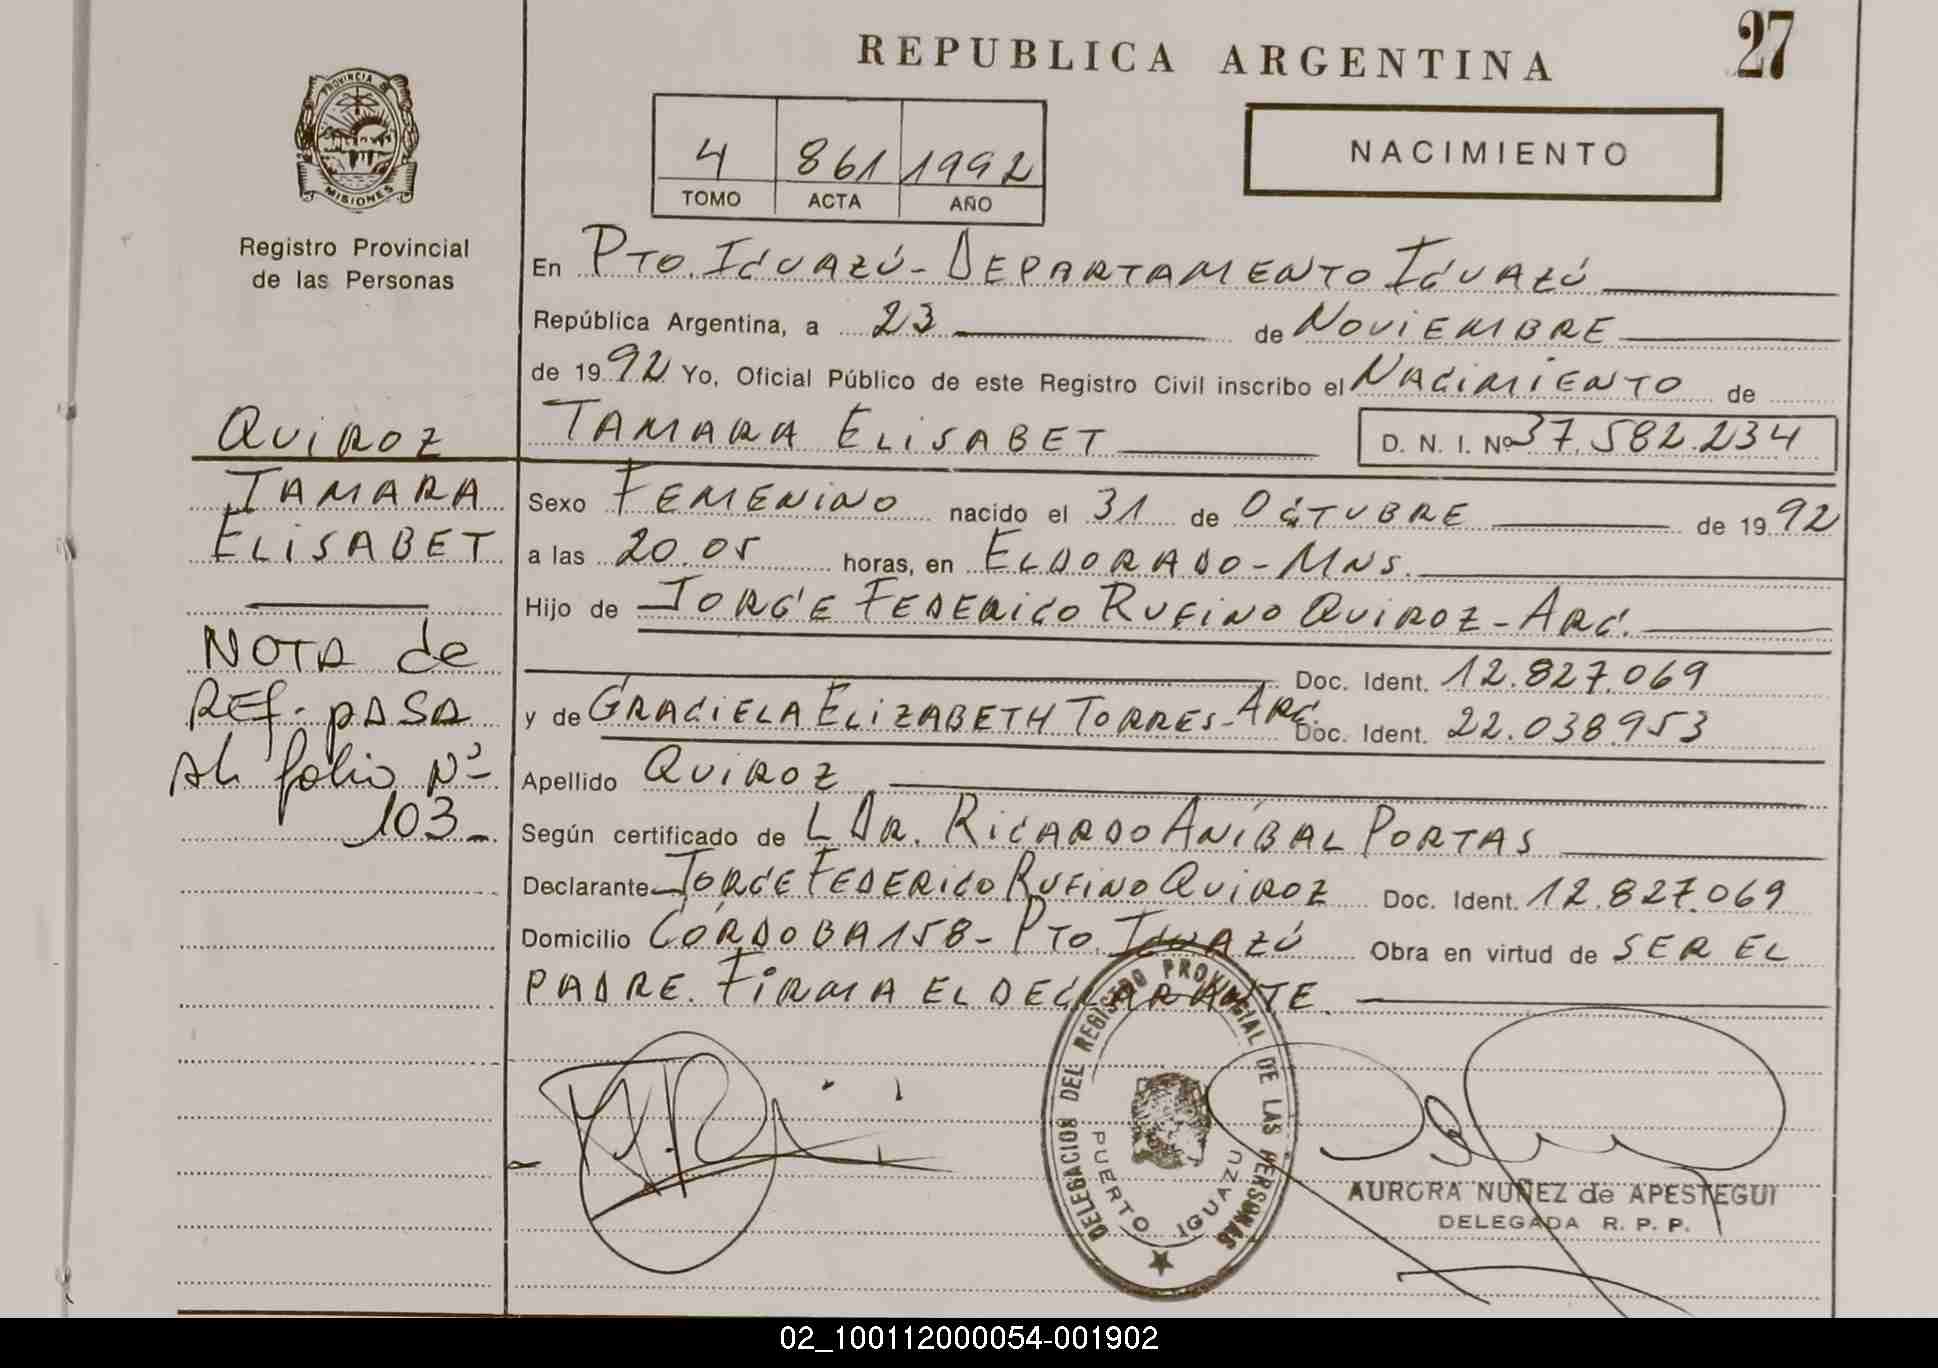 REPUBLICA ARGENTINA
27
PROVINCIA DE
MISIONES
Registro Provincial
de las Personas
4 861 1992
TOMO ACTA AÑO
NACIMIENTO
En PTO. IGUAZÚ - DEPARTAMENTO IGUAZÚ
República Argentina, a 23 de NOVIEMBRE
de 1992 Yo, Oficial Público de este Registro Civil inscribo el NACIMIENTO de
TAMARA ELISABET D. N. I. Nº 37.582.234
Sexo FEMENINO nacido el 31 de OCTUBRE de 1992
a las 20.05 horas, en ELDORADO - MNS.
Hijo de JORGE FEDERICO RUFINO QUIROZ - ARG.
Doc. Ident. 12.827.069
y de GRACIELA ELIZABETH TORRES - ARG. Doc. Ident. 22.038.953
Apellido QUIROZ
Según certificado de L DR. RICARDO ANÍBAL PORTAS
Declarante JORGE FEDERICO RUFINO QUIROZ Doc. Ident. 12.827.069
Domicilio CÓRDOBA 158 - PTO. IGUAZÚ Obra en virtud de SER EL
PADRE. FIRMA EL DECLARANTE.
QUIROZ
TAMARA
ELISABET
NOTA de
REf. pASA
AL folio Nº
103-
DELEGACION DEL REGISTRO PROVINCIAL DE LAS PERSONAS
PUERTO IGUAZU
AURORA NUÑEZ de APESTEGUI
DELEGADA R. P. P.
02_100112000054-001902